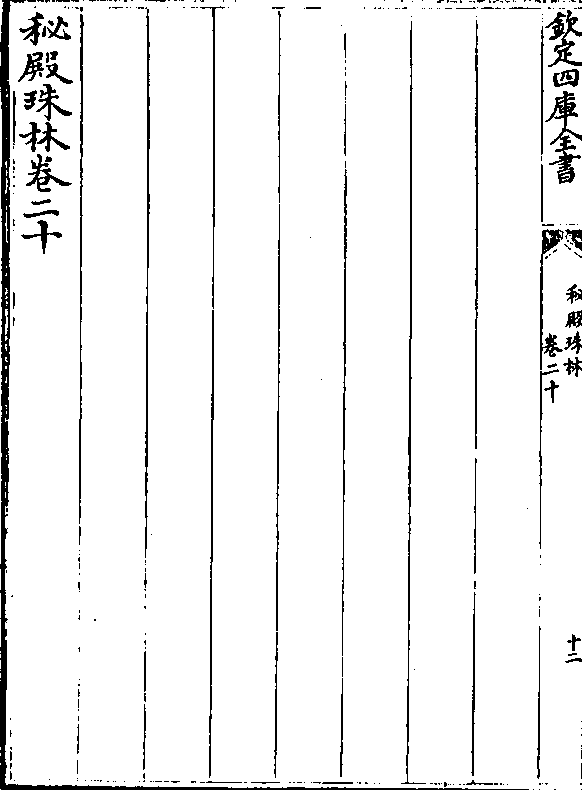 欽定四庫全書
秘殿珠林
卷二十
十二
秘殿珠林卷二十